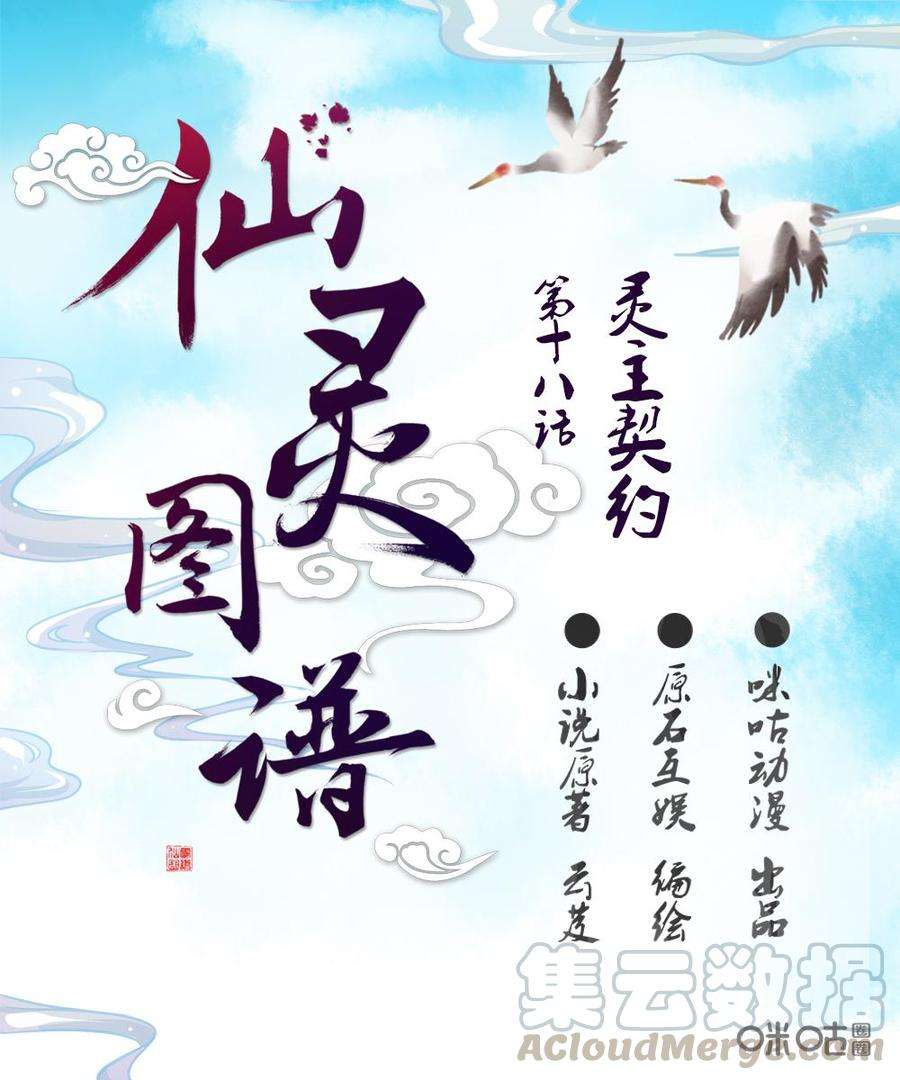 仙灵图谱
灵主契约
第十八话
咪咕动漫 出品
原石互娱 编绘
小说原著 云芨
集云数据
咪咕圈圈
ACloudMerge.com